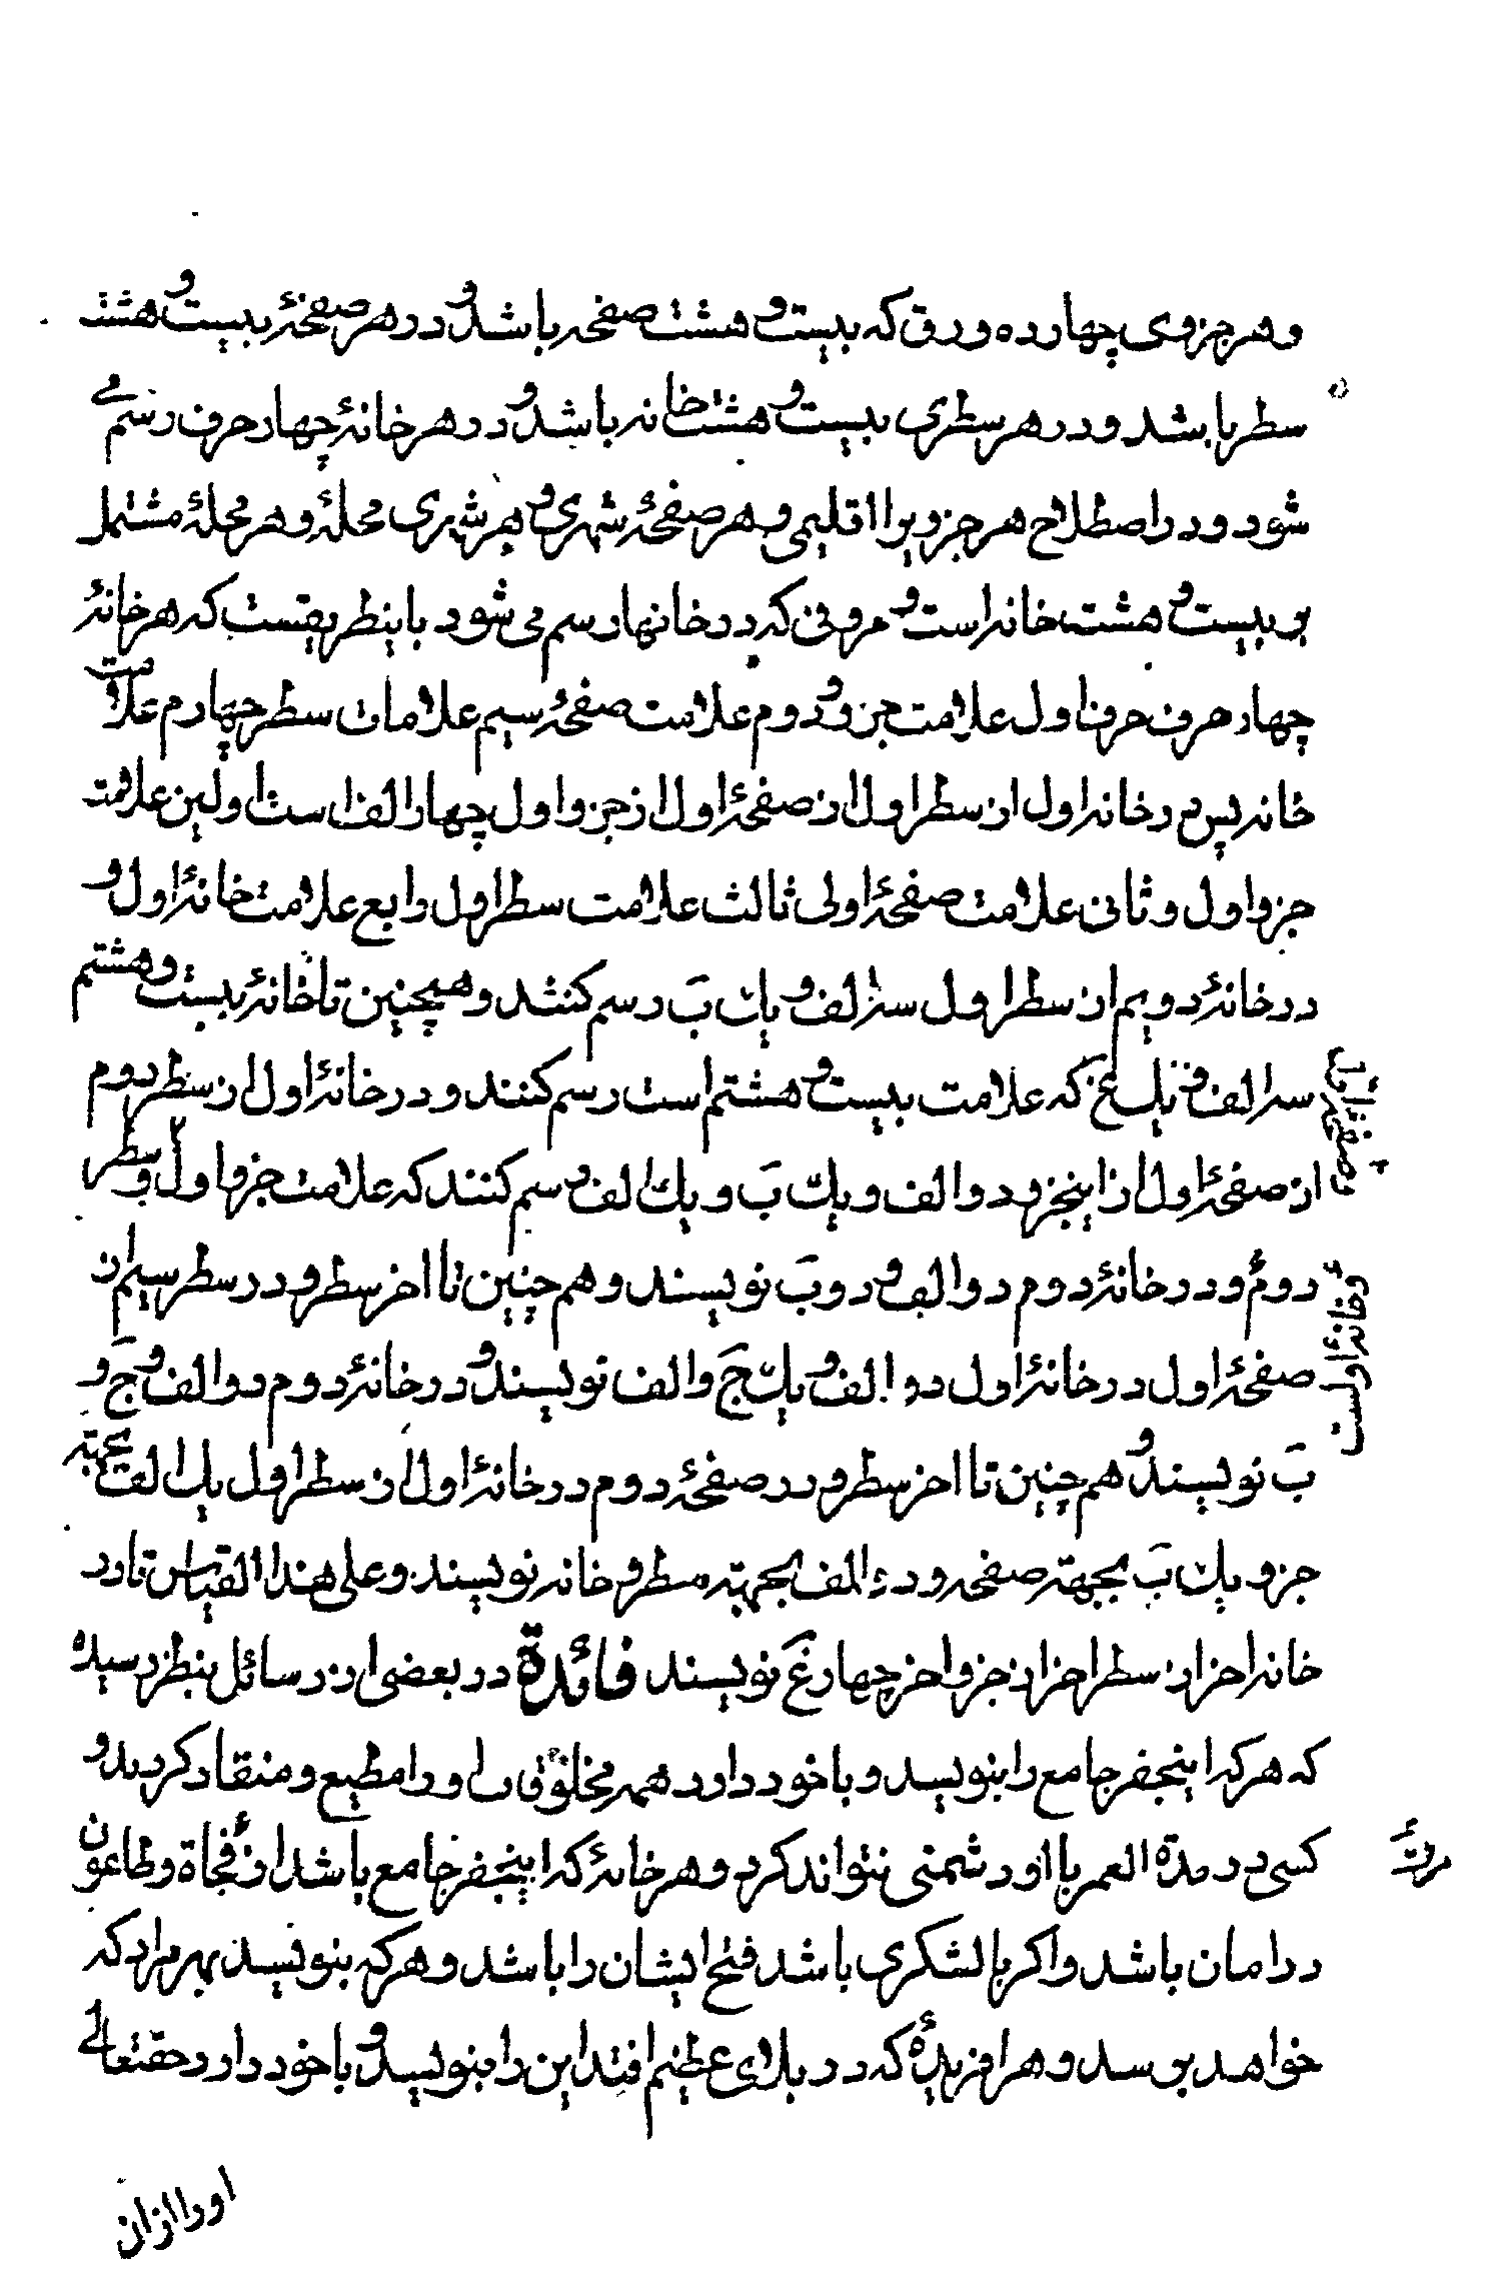 و هر جزوی چهارده ورق که بیست و هشت صفحه باشد و در هر صفحهٔ بیست و هشت
سطر باشد و در هر سطری بیست و هشت خانه باشد و در هر خانهٔ چهار حرف رسم می
شود و در اصطلاح هر جزویرا اقلیمی و هر صفحهٔ شهری و هر شهری محلهٔ و هر محلهٔ مشتمل
بر بیست و هشت خانه است و حروفی که در خانها رسم می شود باینطریقست که هر خانهٔ
چهار حرف حرف اول علامت جزو و دوم علامت صفحهٔ سیم علامات سطر چهارم علامت
خانه پس در خانهٔ اول از سطر اول از صفحهٔ اول از جزو اول چهار الف است اولین علامت
جزو اول و ثانی علامت صفحهٔ اولی ثالث علامت سطر اول رابع علامت خانهٔ اول و
در خانهٔ دویم از سطر اول سه الف و یک بَ رسم کنند و همچنین تا خانهٔ بیست و هشتم
سه الف و یک غ که علامت بیست و هشتم است رسم کنند و در خانهٔ اول از سطر دوم
از صفحهٔ اول از اینجزو دو الف و یک بَ و یک الف رسم کنند که علامت جزو اول و سطر
دوم و در خانهٔ دوم دو الف و دو بَ نویسند و هم چنین تا اخر سطر و در سطر سیم از
صفحهٔ اول در خانهٔ اول دو الف و یک جَ و الف نویسند و در خانهٔ دوم دو الف و جَ و
بَ نویسند و هم چنین تا اخر سطر و در صفحهٔ دوم در خانهٔ اول از سطر اول یک الف بجهته
جزو و یک بَ بجهته صفحه و دو الف بجهته سطر و خانه نویسند و علی هذا القیاس تا در
خانه اخر از سطر اخر از جزو اخر چهار غَ نویسند فائدة در بعضی از رسائل بنظر رسیده
که هر که اینجفر جامع را بنویسد و با خود دارد همه مخلوق او را مطیع و منقاد کردند و
کسی در مدة العمر با او دشمنی نتواند کرد و هر خانهٔ که اینجفر جامع باشد از فجاة و طاعون
در امان باشد و اکر با لشکری باشد فتح ایشان را باشد و هر که بنویسد بهر مراد که
خواهد برسد و هر افریدهٔ که در بلای عظیم افتد این را بنویسد و با خود دارد حقتعالی
او را از ان
و صفحهٔ اول